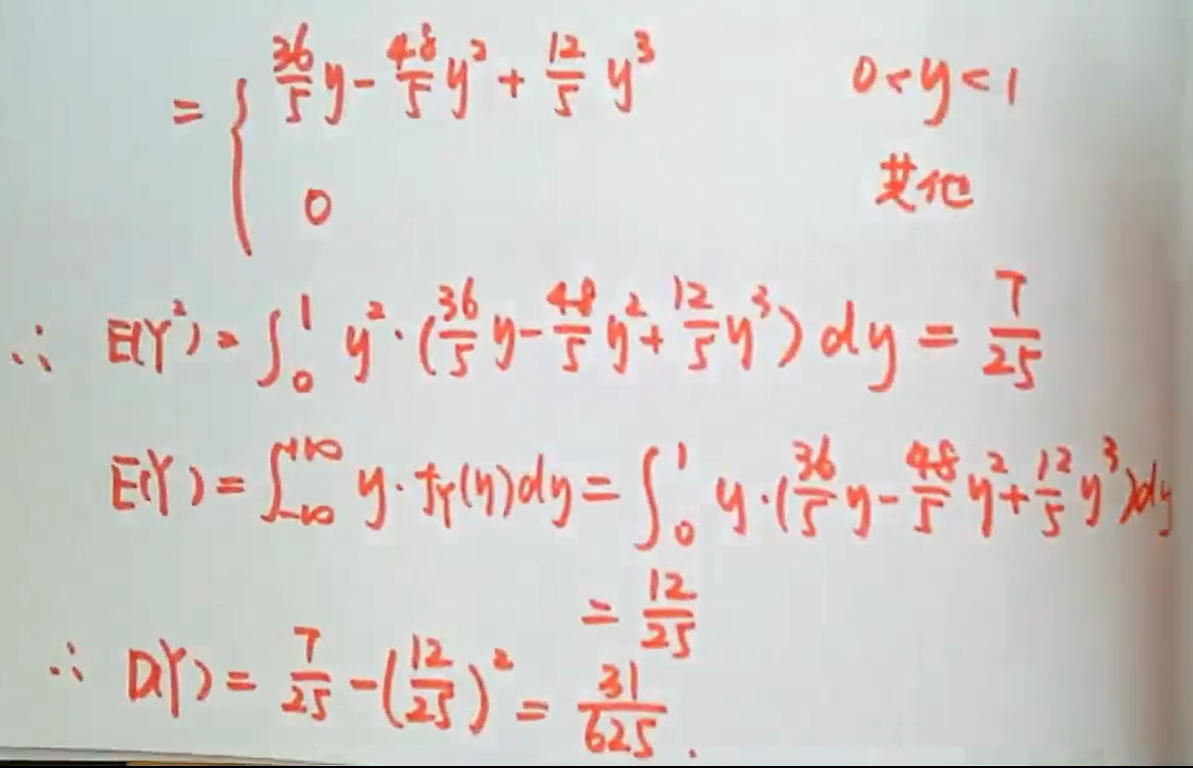 = { 36/5 y - 48/5 y² + 12/5 y³ 0<y<1
0 其他
∴ E(Y²) = ∫₀¹ y²·(36/5 y - 48/5 y² + 12/5 y³) dy = 7/25
E(Y) = ∫₋∞⁺∞ y·f_Y(y)dy = ∫₀¹ y·(36/5 y - 48/5 y² + 12/5 y³)dy
= 12/25
∴ D(Y) = 7/25 - (12/25)² = 31/625.